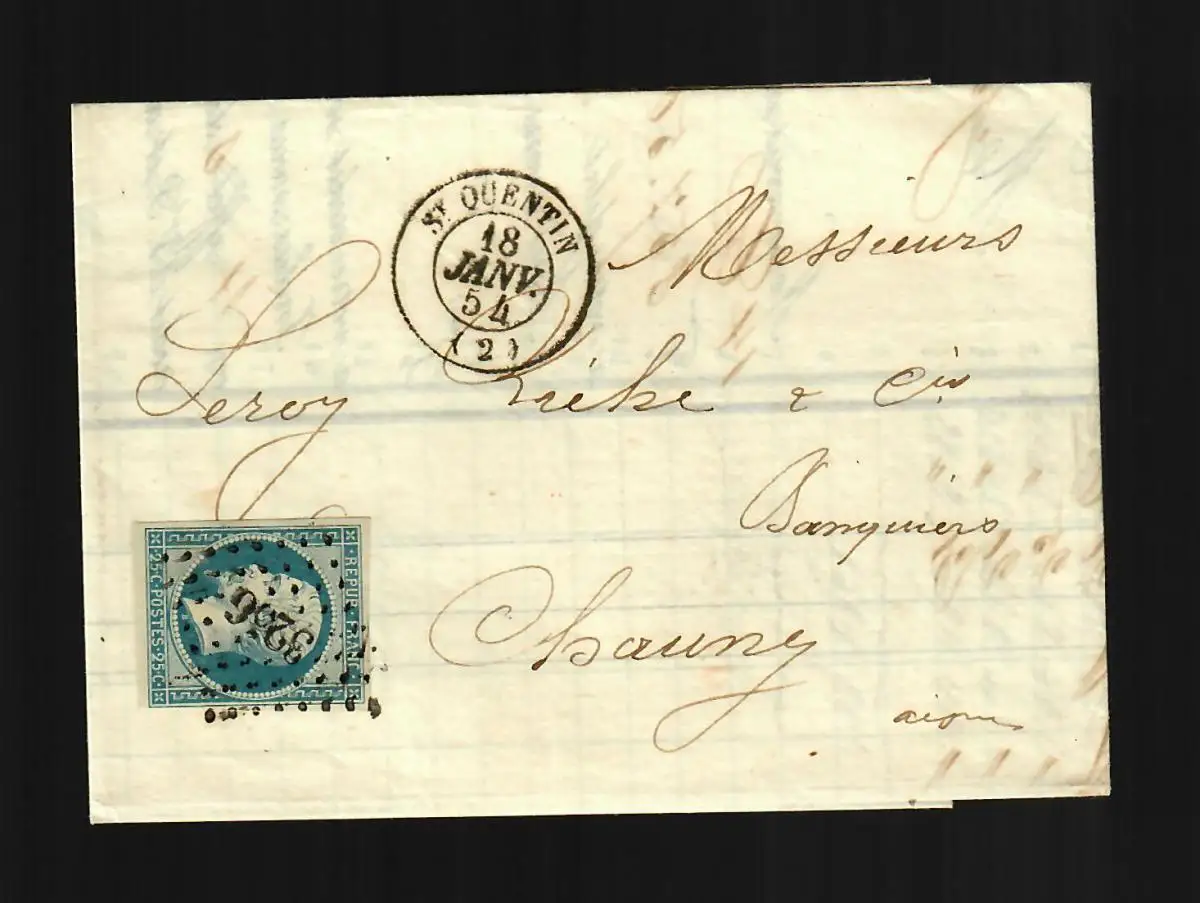 ST QUENTIN
18
JANV.
54
(2)
Messieurs
Leroy & Cie
Banquiers
Chauny
aisne
REPUB. FRANC.
25C·POSTES·25C·